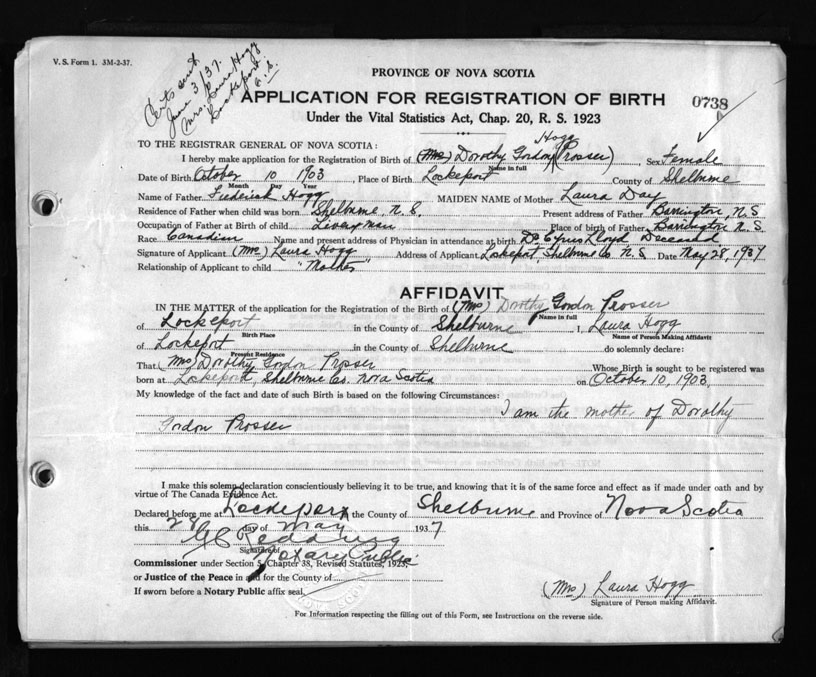 V. S. Form 1. 3M-2-37.
Certs sent
June 3/37.
Mrs. Laura Hogg
Lockeport
N.S.
PROVINCE OF NOVA SCOTIA
APPLICATION FOR REGISTRATION OF BIRTH 0738
Under the Vital Statistics Act, Chap. 20, R. S. 1923
TO THE REGISTRAR GENERAL OF NOVA SCOTIA:
Hogg
I hereby make application for the Registration of Birth of (Mrs) Dorothy Gordon (Prosser) Sex Female
Name in full
Date of Birth October 10 1903 Place of Birth Lockeport County of Shelburne
Month Day Year
Name of Father Frederick Hogg MAIDEN NAME of Mother Laura Day
Residence of Father when child was born Shelburne N.S. Present address of Father Barrington, N.S
Occupation of Father at Birth of child Livery man Place of birth of Father Barrington N.S.
Race Canadian Name and present address of Physician in attendance at birth Dr Cyrus Lloyd, Deceased
Signature of Applicant (Mrs) Laura Hogg Address of Applicant Lockeport, Shelburne Co. N.S Date May 28, 1937
Relationship of Applicant to child "Mother"
AFFIDAVIT
IN THE MATTER of the application for the Registration of the Birth of (Mrs) Dorothy Gordon Prosser
Name in full
of Lockeport in the County of Shelburne I, Laura Hogg
Birth Place Name of Person Making Affidavit
of Lockeport in the County of Shelburne do solemnly declare:
Present Residence
That (Mrs) Dorothy Gordon Prosser Whose Birth is sought to be registered was
born at Lockeport Shelburne Co. Nova Scotia on October 10, 1903
My knowledge of the fact and date of such Birth is based on the following Circumstances:
I am the mother of Dorothy
Gordon Prosser
I make this solemn declaration conscientiously believing it to be true, and knowing that it is of the same force and effect as if made under oath and by
virtue of The Canada Evidence Act.
Declared before me at Lockeport the County of Shelburne and Province of Nova Scotia
this 28 day of May 1937
Signature of
Notary Public
Commissioner under Section 5, Chapter 38, Revised Statutes, 1923.
or Justice of the Peace in and for the County of
If sworn before a Notary Public affix seal.
(Mrs) Laura Hogg
Signature of Person making Affidavit.
For Information respecting the filling out of this Form, see Instructions on the reverse side.